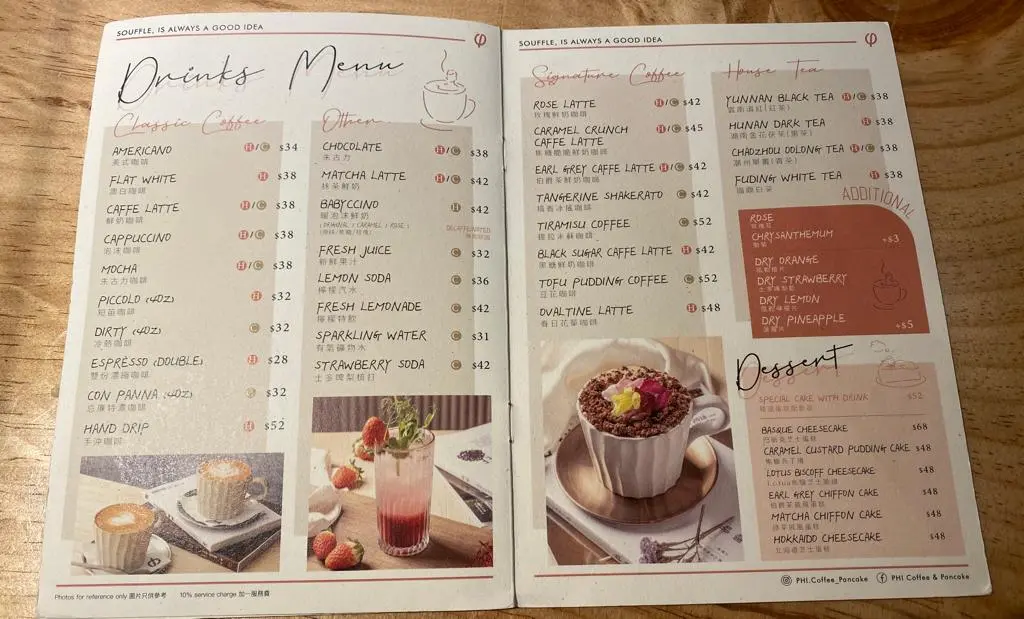 SOUFFLE, IS ALWAYS A GOOD IDEA
φ
Drinks Menu
Classic Coffee
AMERICANO H/C $34
美式咖啡
FLAT WHITE H $38
澳白咖啡
CAFFE LATTE H/C $38
鮮奶咖啡
CAPPUCCINO H/C $38
泡沫咖啡
MOCHA H/C $38
朱古力咖啡
PICCOLO (4OZ) H $32
短笛咖啡
DIRTY (4OZ) C $32
冷熱咖啡
ESPRESSO (DOUBLE) H $28
雙份濃縮咖啡
CON PANNA (4OZ) $32
忌廉特濃咖啡
HAND DRIP H $52
手沖咖啡
Other
CHOCOLATE H/C $38
朱古力
MATCHA LATTE H/C $42
抹茶鮮奶
BABYCCINO H $42
暖泡沫鮮奶
(ORIGINAL / CARAMEL / ROSE)
DECAFFEINATED
FRESH JUICE C $32
新鮮果汁
LEMON SODA C $36
檸檬汽水
FRESH LEMONADE C $42
檸檬特飲
SPARKLING WATER C $31
有氣礦物水
STRAWBERRY SODA C $42
士多啤梨梳打
Photos for reference only 圖片只供參考 10% service charge 加一服務費
SOUFFLE, IS ALWAYS A GOOD IDEA
φ
Signature Coffee
ROSE LATTE H/C $42
玫瑰鮮奶咖啡
CARAMEL CRUNCH H/C $45
CAFFE LATTE
焦糖脆脆鮮奶咖啡
EARL GREY CAFFE LATTE H/C $42
伯爵茶鮮奶咖啡
TANGERINE SHAKERATO C $42
TIRAMISU COFFEE C $52
提拉米蘇咖啡
BLACK SUGAR CAFFE LATTE H $42
黑糖鮮奶咖啡
TOFU PUDDING COFFEE C $52
豆花咖啡
OVALTINE LATTE H $48
House Tea
YUNNAN BLACK TEA H/C $38
雲南滇紅(紅茶)
HUNAN DARK TEA H/C $38
湖南金花茯茶(黑茶)
CHAOZHOU OOLONG TEA H/C $38
FUDING WHITE TEA H $38
福鼎白茶
ADDITIONAL
ROSE
CHRYSANTHEMUM +$3
DRY ORANGE
DRY STRAWBERRY
DRY LEMON
DRY PINEAPPLE +$5
Dessert
SPECIAL CAKE WITH DRINK $52
BASQUE CHEESECAKE $68
巴斯克芝士蛋糕
CARAMEL CUSTARD PUDDING CAKE $48
LOTUS BISCOFF CHEESECAKE $48
EARL GREY CHIFFON CAKE $48
伯爵茶戚風蛋糕
MATCHA CHIFFON CAKE $48
抹茶戚風蛋糕
HOKKAIDO CHEESECAKE $48
北海道芝士蛋糕
PHI.Coffee_Pancake PHI Coffee & Pancake